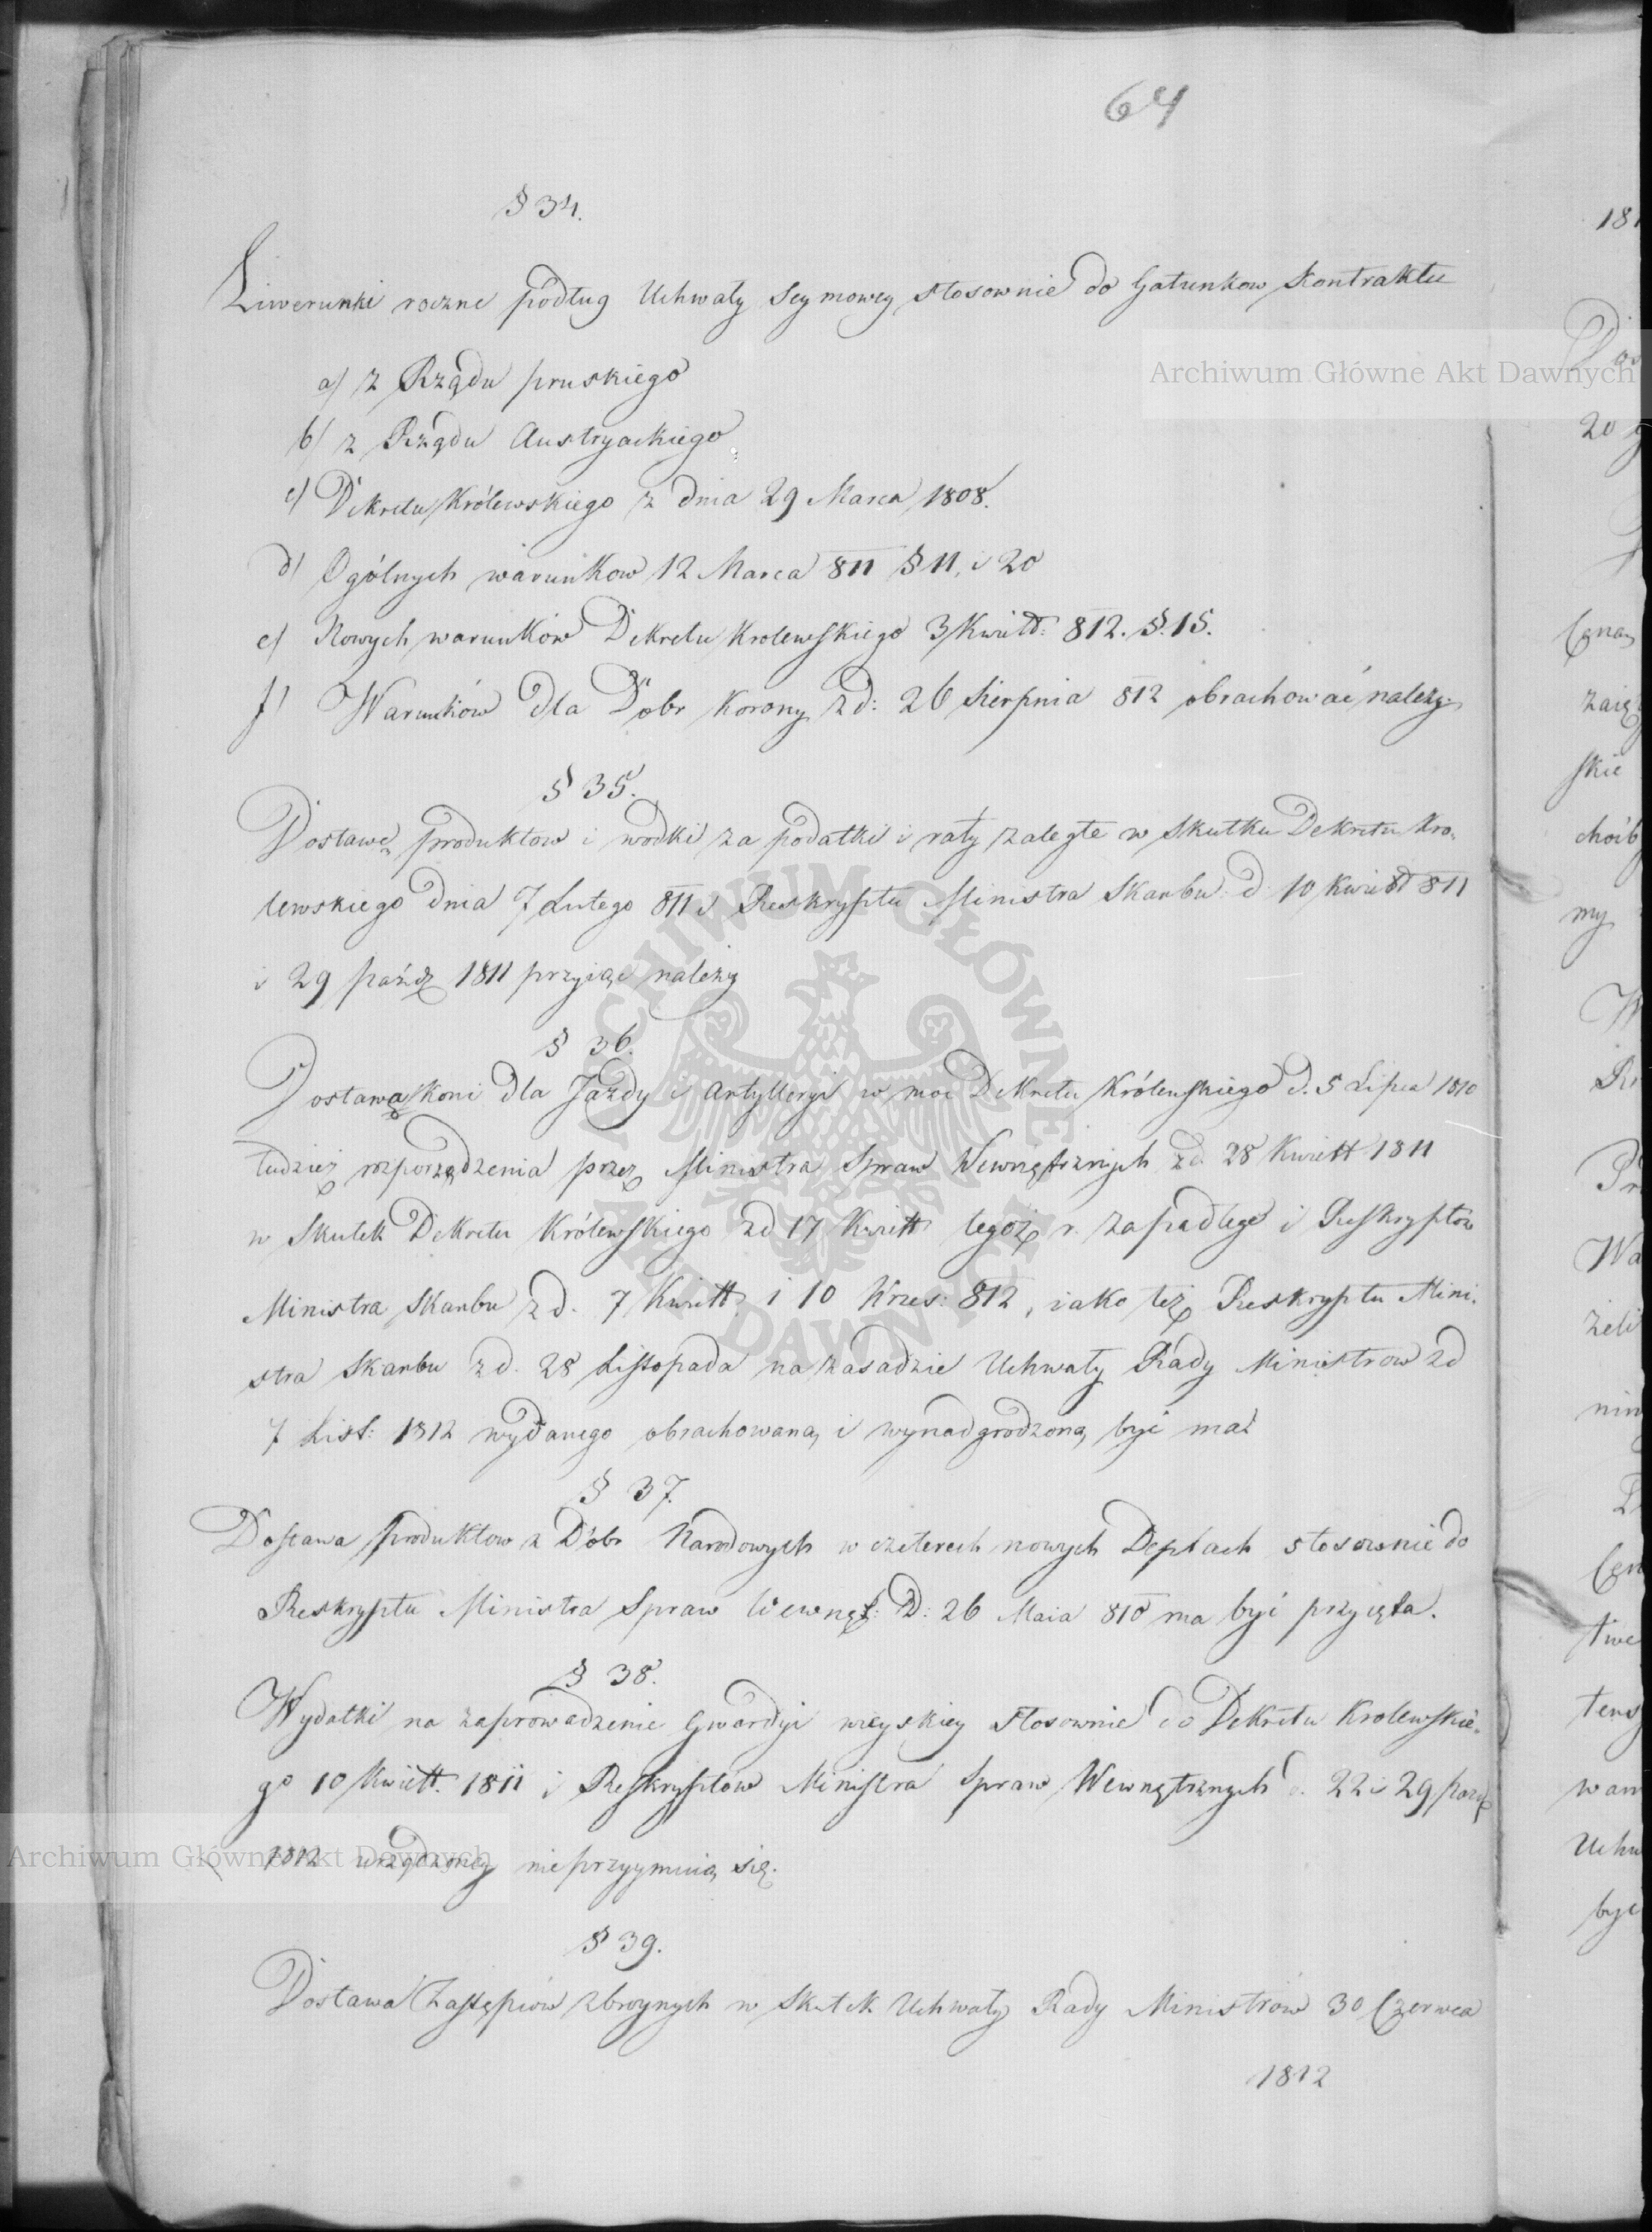 64
§ 34.
Liwerunki roczne podług Uchwały Seymowey stosownie do Gatunkow Kontraktu
a/ z Rządu pruskiego
b/ z Rządu Austryackiego
c/ Dekretu Królewskiego z dnia 29 Marca 1808.
d/ Ogólnych warunkow 12 Marca 811 § 11, i 20
e/ Nowych warunków Dekretu Krolewskiego 3 Kwiet: 812. §. 15.
f/ Warunków dla Dobr Korony z d: 26 Sierpnia 812 obrachować należy
§ 35.
Dostawę produktow i wodki za podatki i raty zaległe w Skutku Dekretu Kro-
lewskiego dnia 7 Lutego 811 i Reskryptu Ministra Skarbu d 10 Kwiet 811
i 29 paźdz 1811 przyiąć należy
§ 36.
Dostawa koni dla Jazdy i Artylleryi w moc Dekretu Królewskiego d. 5 Lipca 1810
tudzież rozporządzenia przez Ministra Spraw Wewnętrznych z d 28 Kwiett 1811
w Skutek Dekretu Królewskiego z d 17 Kwiett tegoż r. zapadłego i Reskryptów
Ministra Skarbu z d. 7 Kwiett i 10 Wrzes: 812, iako też Reskryptu Mini-
stra Skarbu z d. 28 Listopada na zasadzie Uchwały Rady Ministrow z d
7 List: 1812 wydanego obrachowaną i wynadgrodzoną być ma
§ 37.
Dostawa produktow z Dóbr Narodowych w czterech nowych Deptach stosownie do
Reskryptu Ministra Spraw Wewnęt: D: 26 Maia 810 ma być przyięta.
§ 38.
Wydatki na zaprowadzenie Gwardyi wieyskiey stosownie do Dekretu Krolewskie-
go 10 Kwiett. 1811 i Reskryptów Ministra Spraw Wewnętrznych d. 22 i 29 paźdz
1812 urządzoney nieprzyymuią się.
§ 39.
Dostawa Zastępców zbroynych w Skutek Uchwały Rady Ministrów 30 Czerwca
1812
Archiwum Główne Akt Dawnych
Archiwum Główne Akt Dawnych
ARCHIWUM GŁÓWNE AKT DAWNYCH